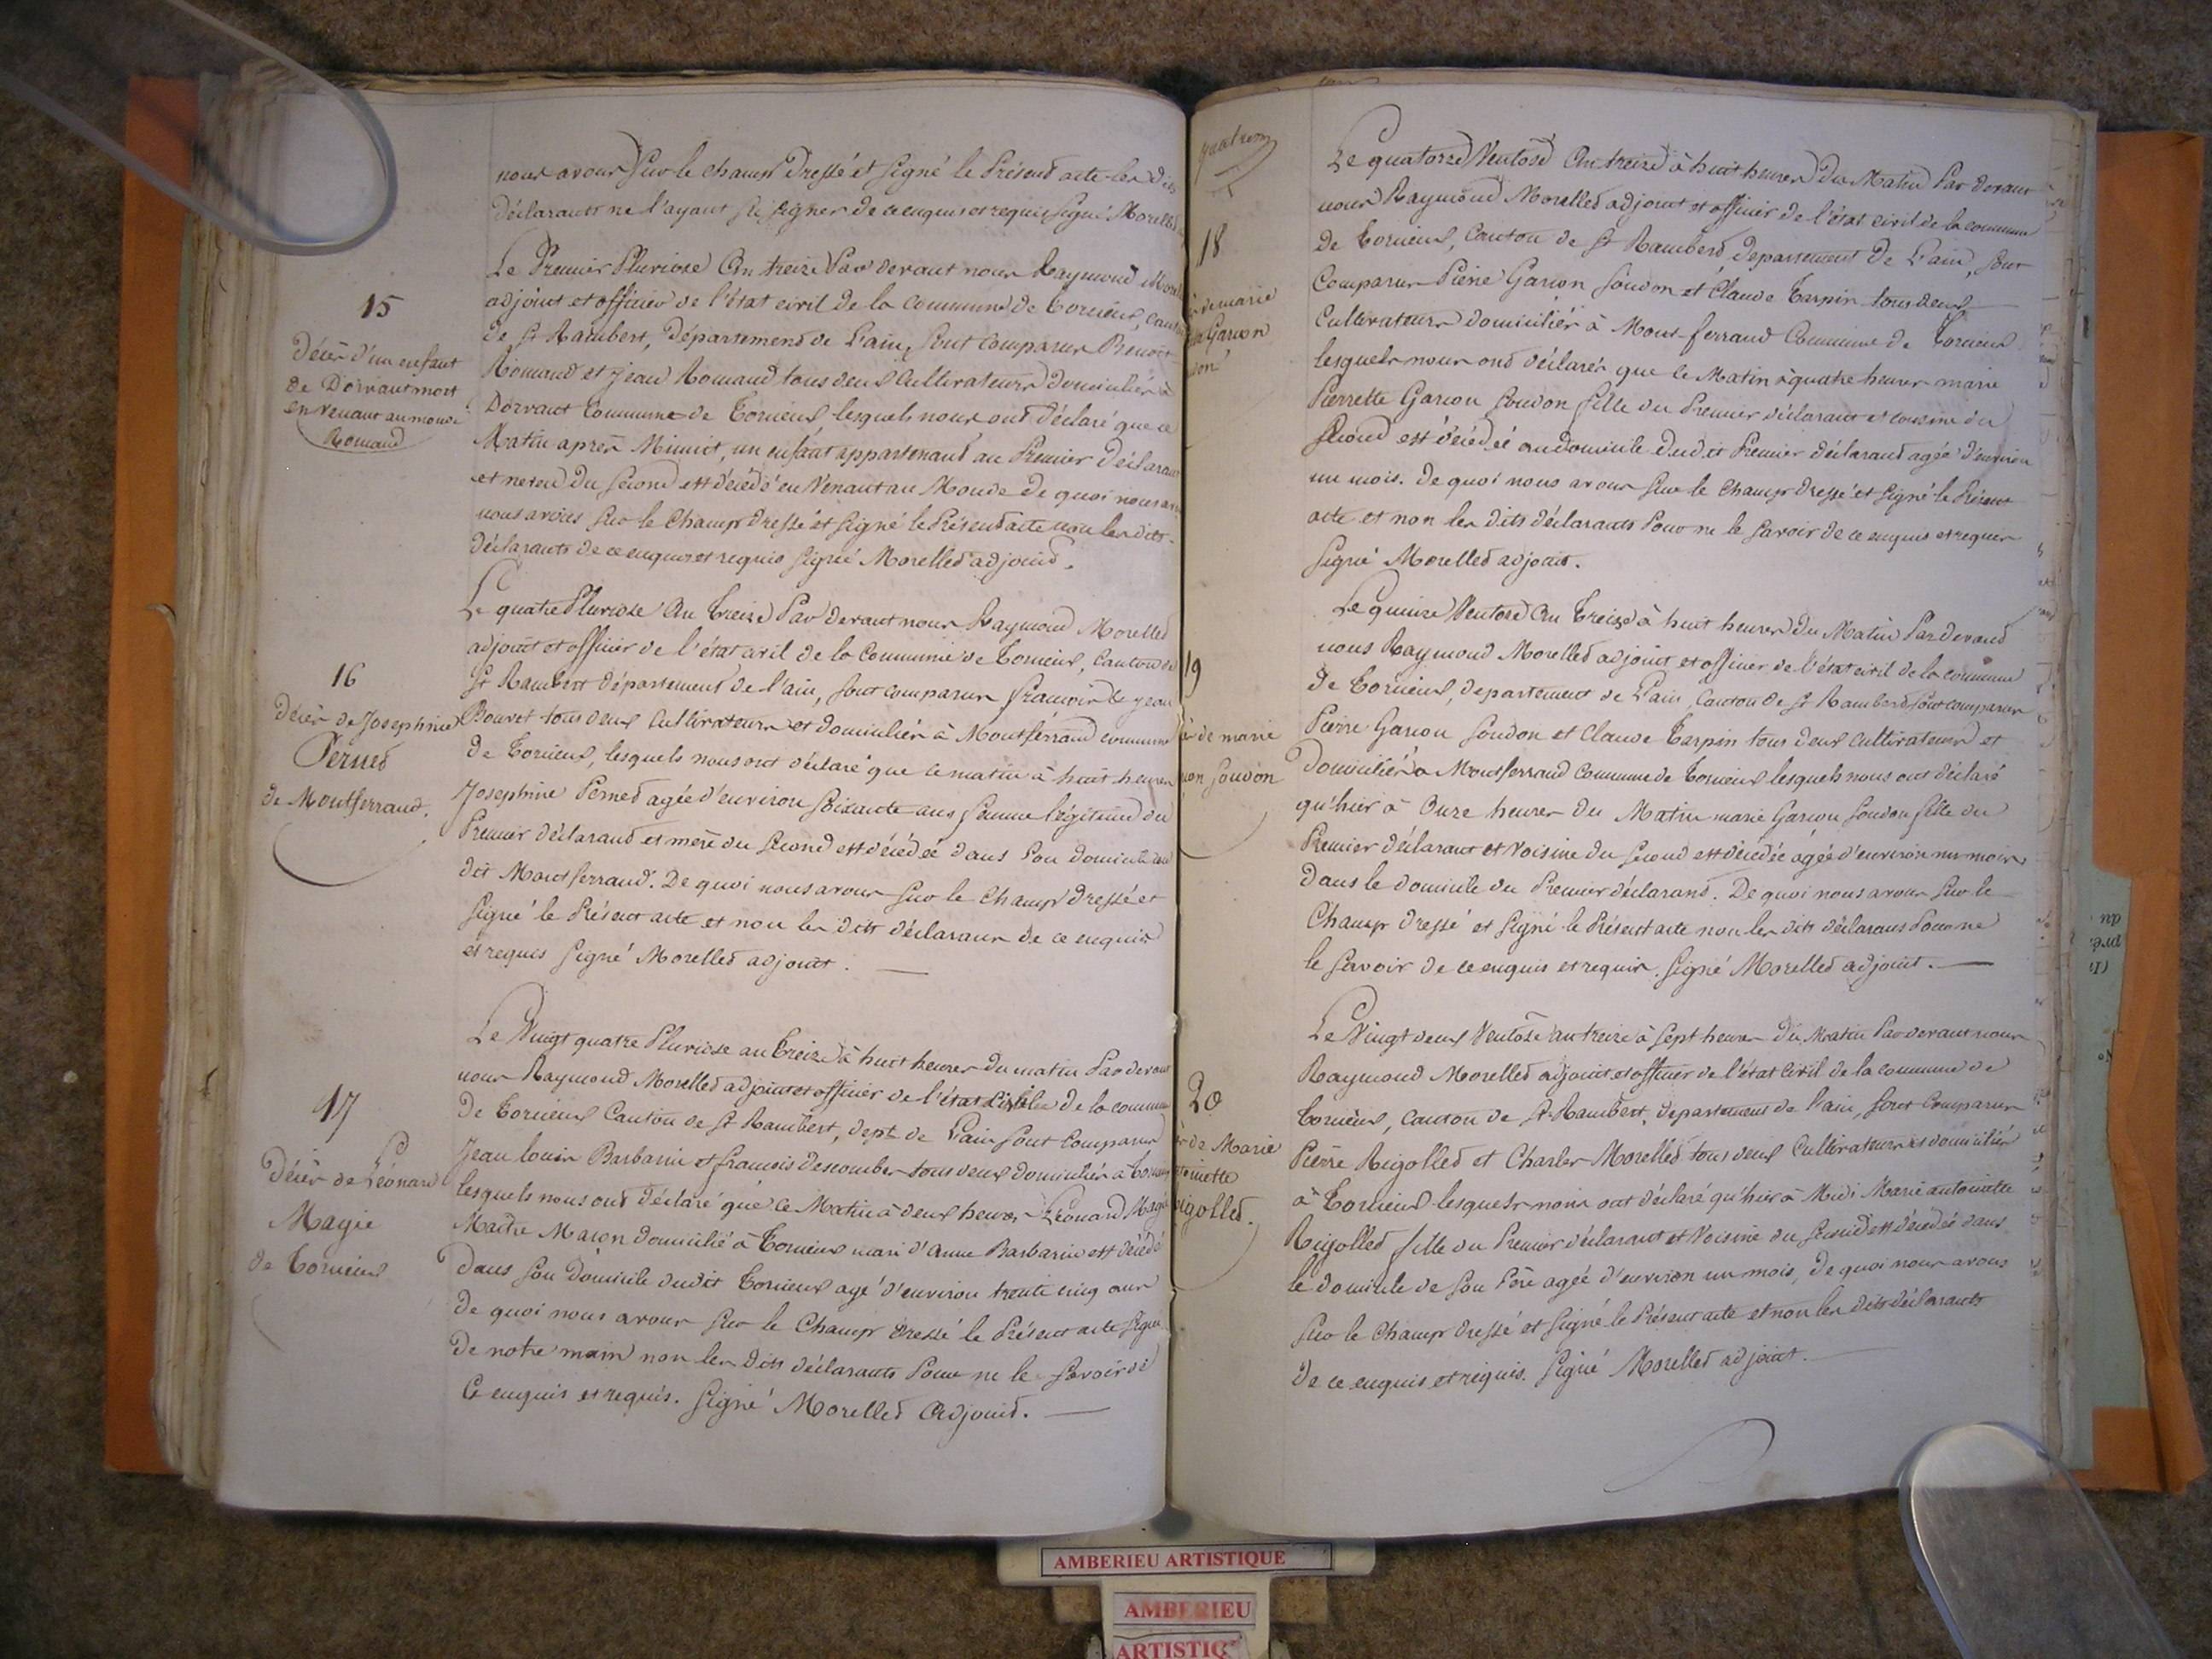 nous avons sur le champ dressé et signé le Présent acte les dits
déclarants ne l'ayant su signer de ce enquis et requis signé Morelled
15
Décès d'un enfant
de Dorvant mort
en venant au monde
Romand
Le Premier Pluviose An treize Par devant nous Raymond Morel
adjoint et officier de l'état civil de la commune de Torcieux, canton
de St Rambert, Département de l'ain, sont comparus Benoit
Romand et Jean Romand tous deux Cultivateurs domiciliés à
Dorvant Commune de Torcieux lesquels nous ont déclaré que ce
Matin après Minuit, un enfant appartenant au Premier déclarant
et neveu du second est décédé en Venant au Monde de quoi
nous avons sur le Champ dressé et signé le Présent acte non les dits
déclarants de ce enquis et requis signé Morelled adjoind.
16
Décès de Josephine
Perned
de Montferrand.
Le quatre Pluviose An Treize Par devant nous Raymond Morelled
adjoint et officier de l'état civil de la Commune de Torcieux, Canton de
St Rambert département de l'ain, sont comparus francois & jean
Bouvet tous deux Cultivateurs et domiciliés à Montferrand commune
de Torcieux, lesquels nous ont déclaré que ce matin à huit heures
Josephine Perned agée d'environ soixante ans femme légitime du
Premier déclarand et mere du second est décédée dans son domicile au
dit Montferrand. De quoi nous avons sur le Champ dressé et
signé le Présent acte et non les dits déclarans de ce enquis
et requis signé Morelled adjoint.
17
Décès de Léonard
Magie
de Torcieux
Le Vingt quatre Pluviose an Treize à huit heures du matin Par devant
nous Raymond Morelled adjoint et officier de l'état Civile de la commune
De Torcieux Canton de St Rambert, dept de l'ain sont comparus
Jean louis Barbarin et francois Descombes tous deux domiciliés à Torcieux
lesquels nous ont déclaré que ce Matin à deux heures Léonard Magie
Maitre Macon domicilié à Torcieux mari d'anne Barbarin est décédé
dans son Domicile dudit Torcieux agé d'environ trente cinq ans
de quoi nous avons sur le Champ dressé le Présent acte signé
de notre main non les dits déclarants Pour ne le savoir de
Ce enquis et requis. signé Morelled Adjoind.
18
de marie
Garcon
Le quatorze Ventose An treize à huit heures du Matin Par devant
nous Raymond Morelled adjoint et officier de l'état civil de la commune
de Torcieux, Canton de St Rambert, département de l'ain, sont
Comparus Pierre Garcon Soudon et Claude Tarpin tous deux
Cultivateurs domiciliés à Mont ferrand Commune de Torcieux
lesquels nous ont déclarés que ce Matin à quatre heures marie
Pierrette Garcon Soudon fille du Premier déclarant et cousine du
second est décédée au domicile dudit Premier déclarand agée d'environ
un mois. De quoi nous avons sur le Champ dressé et signé le Présent
acte et non les dits déclarants Pour ne le savoir de ce enquis et requis
signé Morelled adjoint.
19
de marie
Soudon
Le quinze Ventose An Treize à huit heures du Matin Par devant
nous Raymond Morelled adjoint et officier de l'état civil de la commune
de Torcieux, département de l'ain, Canton de St Rambert sont comparus
Pierre Garcon Soudon et Claude Tarpin tous deux cultivateurs et
Domiciliés à Montferrand commune de Torcieux lesquels nous ont déclaré
qu'hier à Onze heures du Matin marie Garcon Soudon fille du
Premier déclarant et Voisine du second est décédée agée d'environ un mois
dans le domicile du Premier déclarand. De quoi nous avons sur le
Champ dressé et signé le Présent acte non les dits déclarans Pour ne
le savoir de ce enquis et requis. signé Morelled adjoint.
20
de Marie
toinette
Rigolled.
Le Vingt deux Ventose an treize à sept heures du Matin Par devant nous
Raymond Morelled adjoint et officier de l'état Civil de la commune de
Torcieux, canton de St Rambert, département de l'ain, sont comparus
Pierre Rigolled et Charles Morelled tous deux Cultivateurs et domiciliés
à Torcieux lesquels nous ont déclaré qu'hier à Midi Marie antoinette
Rigolled fille du Premier déclarant et Voisine du second est décédée dans
le domicile de son Père agée d'environ un mois, de quoi nous avons
sur le Champ dressé et signé le Présent acte et non les dits déclarants
De ce enquis et requis. signé Morelled adjoint.
AMBERIEU ARTISTIQUE
AMBERIEU
ARTISTIQ